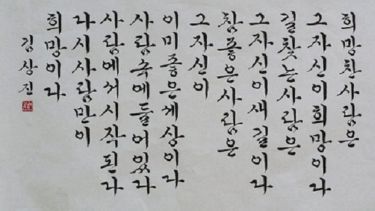 희망찬 사람은
그 자신이 희망이다
길 찾는 사람은
그 자신이 새 길이다
참 좋은 사람은
그 자신이
이미 좋은 세상이다
사람 속에 들어 있다
사람에서 시작된다
다시 사람만이
희망이다
김상진